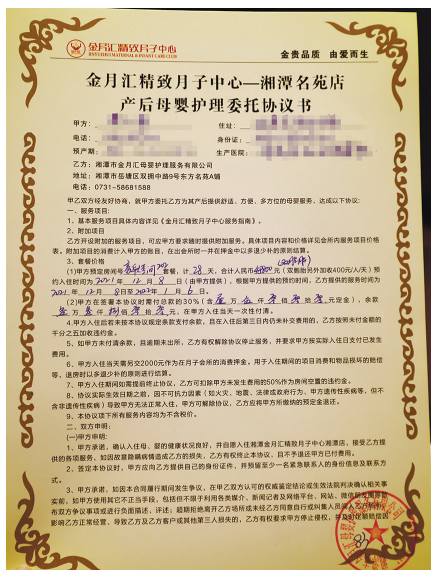 金月汇精致月子中心
JINYUEHUI MATERNAL & INFANT CARE CENTER
金贵品质 由爱而生
金月汇精致月子中心—湘潭名苑店
产后母婴护理委托协议书
甲方:
住址:
电话:
身份证:
预产期:
生产医院:
乙方:湘潭市金月汇母婴护理服务有限公司
地址:湘潭市岳塘区双拥中路9号东方名苑A铺
电话:0731-58681588
甲乙双方经友好协商,就甲方委托乙方为其产后提供舒适、方便、多方位的母婴服务,达成以下协议:
一、服务项目:
1、基本服务项目具体内容详见《金月汇精致月子中心服务指南》。
2、附加项目
乙方开设附加的服务项目,可应甲方要求随时提供附加服务。具体项目内容和价格详见会所内服务项目价格
表。附加项目的消费计入甲方的账目,在出会所时一并在押金中以多退少补的原则结算。
3、套餐价格
(1)甲方预定房间号 套餐,计28天,合计人民币 (双胞胎另外加收400元/人/天)预
约入住时间为2021年12月8日(由甲方提供),根据甲方提供的预约时间,乙方提供的服务时间为
2021年12月8日至2022年1月6日。
(2)甲方在签署本协议时需付总款的30%(含 万 仟 佰 拾 元定金),余款
万 仟 佰 拾 元,在甲方入住当天一次性付清。
4、甲方入住后若未按本协议规定条款支付余款,且在入住后第三日内仍未补交费用的,乙方按照未付金额的
千分之五加收违约金。
5、如甲方未付清余款,且逾期未出所,乙方有权解除协议停止服务,并要求甲方按实际入住日支付已发生
费用。
6、甲方入住当天需另交2000元作为在月子会所的消费押金。用于入住期间的项目消费和物品损坏的赔偿
等,退房时以多退少补的原则进行结算。
7、甲方入住期间如需提前终止协议,乙方可扣除甲方未发生费用的50%作为房间空置的违约金。
8、协议实际生效日期之前,因不可抗力因素(如火灾、地震、法律或政府行为、甲方遗传性疾病等,但不
含非遗传性疾病)导致甲方无法正常入住,甲方可解除协议,乙方应将甲方所缴纳的预定金退还。
9、本协议项下所有服务内容均为不含税价。
二、双方申明:
(一)甲方申明:
1、甲方承诺,确认入住母、婴的健康状况良好,并自愿入住湘潭金月汇精致月子中心湘潭店,接受乙方提
供的各项服务,如因故意隐瞒病情造成乙方的损失,乙方有权终止本协议,且不予退还甲方已付费用。
2、签定本协议时,甲方应向乙方提供自己的身份证件,并预留至少一名紧急联系人的身份信息及联系方
式。
3、甲方承诺,如因本合同履行期间发生争议,在甲乙双方认可的权威鉴定结论或生效法院判决确认相关事
实前,如甲方使用其它不正当手段,包括但不限于利用各类媒介、新闻记者及网络平台、网站、微信
双方争议事项或进行负面描述、评述;超期拒绝离开乙方场所或未经乙方同意自行或纠集人员
影响乙方正常经营、导致乙方及乙方客户或其他第三人损失的,乙方有权要求甲方停止侵权,并